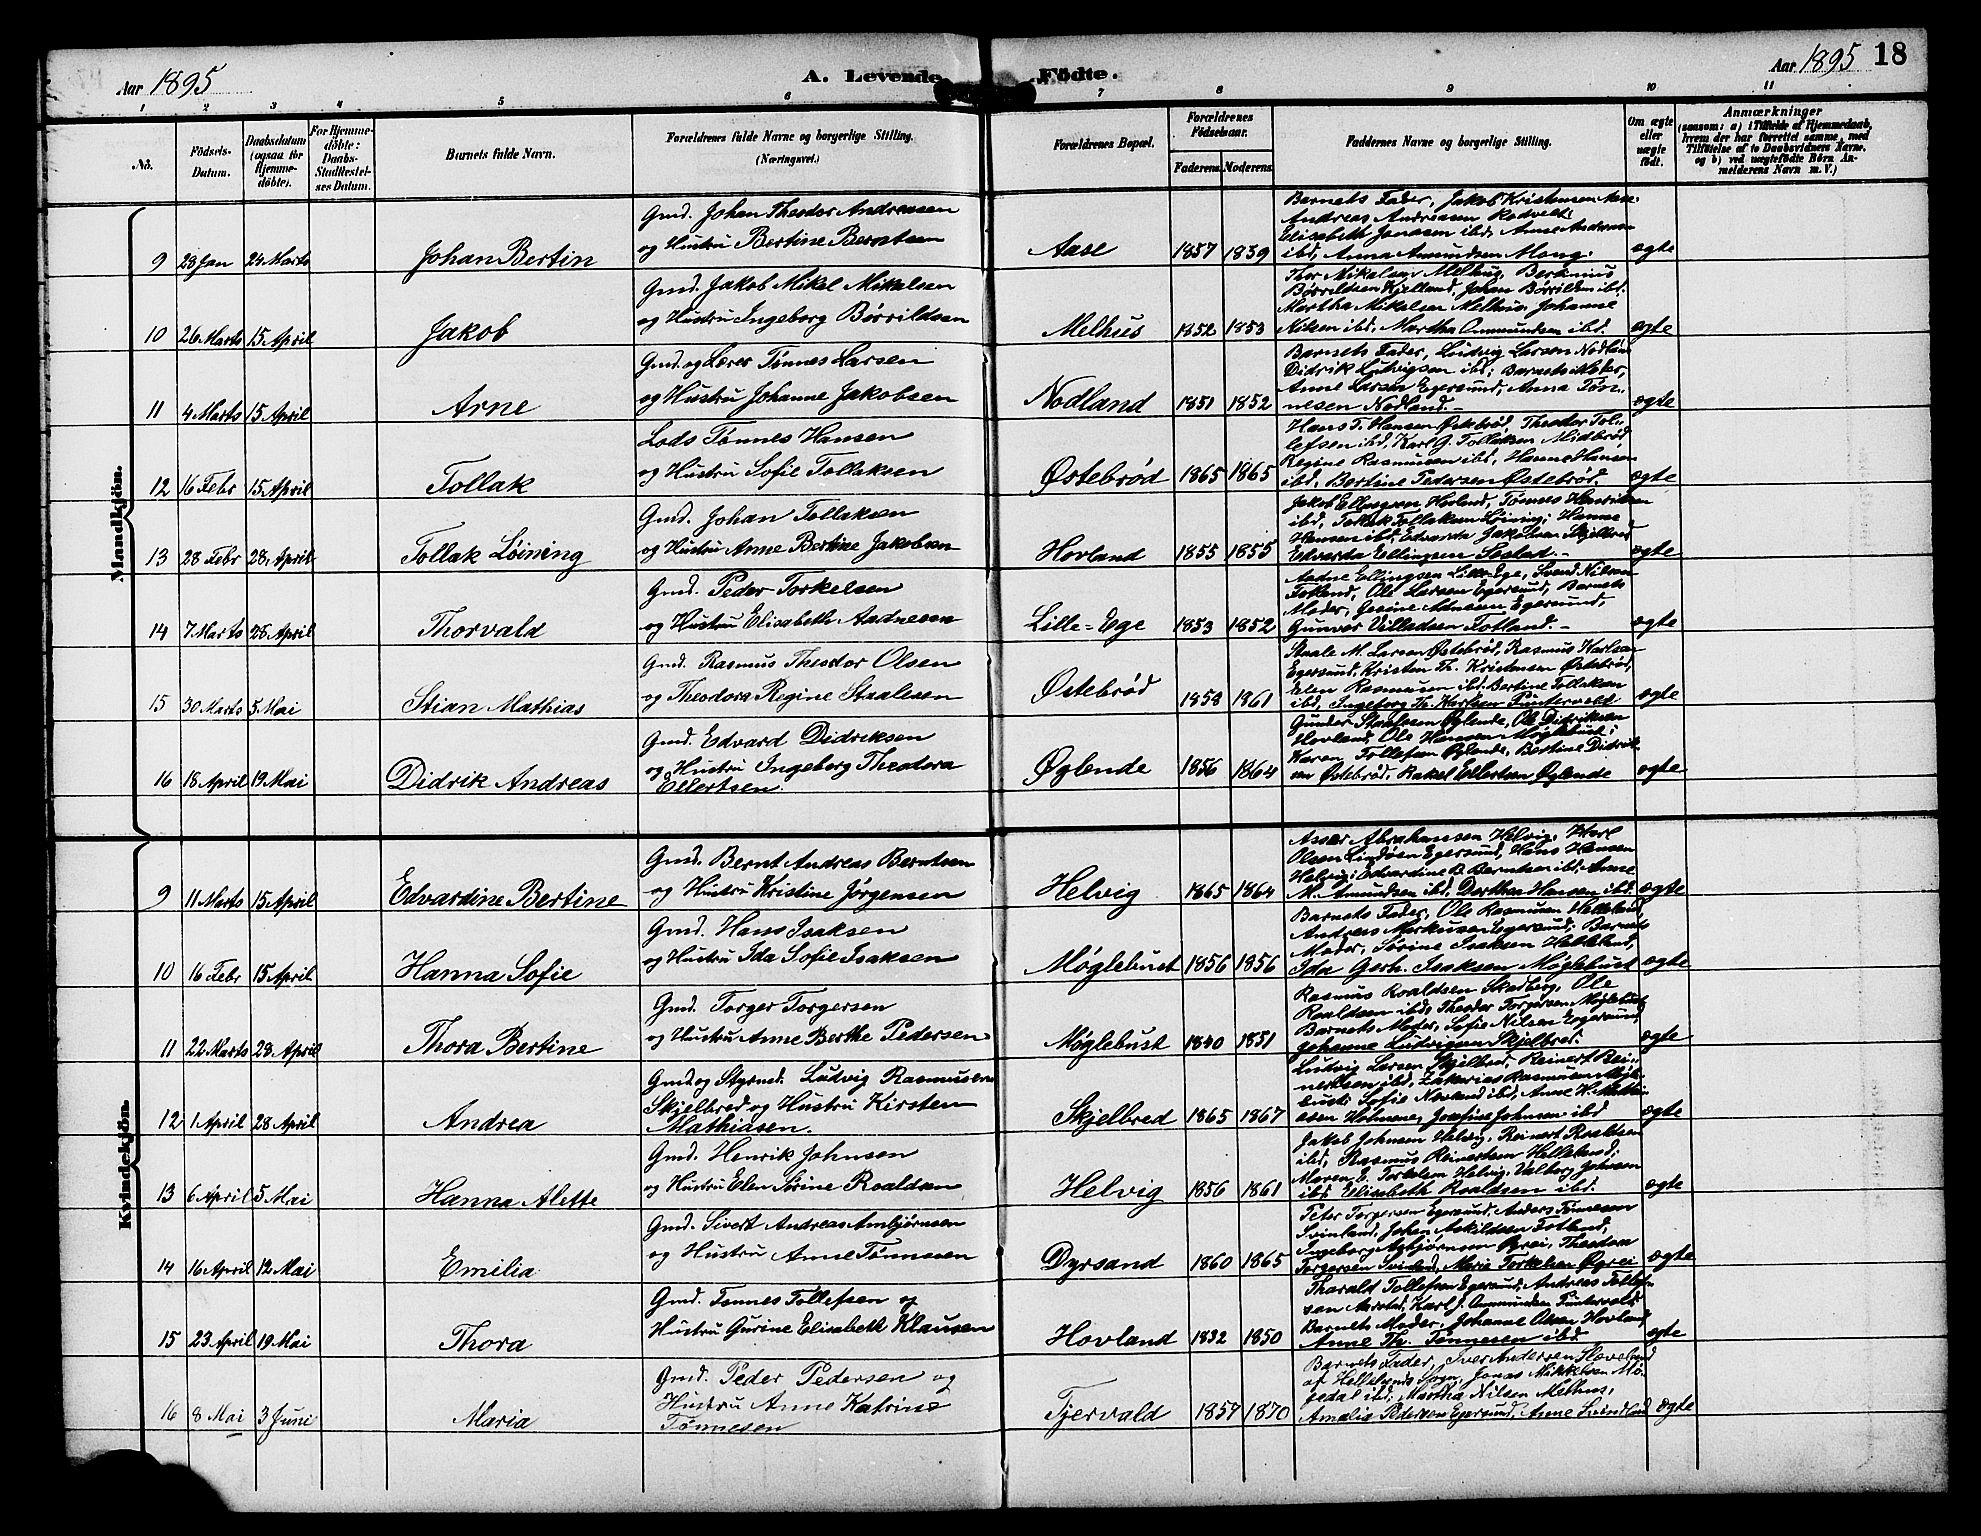 Aar 1895
A. Levende Födte.
Aar 1895 18
1 2 3 4 5 6 7 8 9 10 11
No. Födsels-Datum. Daabsdatum (ogsaa for Hjemme-döbte). For Hjemme-döbte: Daabs-Stadfæstelses Datum. Barnets fulde Navn. Forældrenes fulde Navne og borgerlige Stilling. (Næringsvei.) Forældrenes Bopæl. Forældrenes Födselsaar. Faderens. Moderens. Faddernes Navne og borgerlige Stilling. Om ægte eller uægte födt. Anmærkninger (saasom: a) i Tilfælde af Hjemmedaab, hvem der har forrettet samme, med Tilföielse af to Daabsvidners Navne, og b) ved uægtefödte Börn Anmelderens Navn m. V.)
Mandkjön.
9 28 Jan 24 Marts Johan Bertin
Gmd. Johan Theodor Andreasen
og Hustru Bertine Berntsen
Aase 1857 1859
Barnets Fader, Jakob Kristensen Aase
Andreas Andreasen Rodvelt:
Elisabeth Jonasen ibd, Anne Andersen
ibd, Anna Amundsen Mong.
ægte
10 26 Marts 15 April Jakob
Gmd. Jakob Mikal Mikalsen
og Hustru Ingeborg Børrildsen
Melhus 1852 1853
Thor Mikalsen Melhus, Berknius
Børrildsen Kjelland, Johan Børrildsen ibd.
Martha Mikalsen Melhus, Johanne
Nilsen ibd, Martha Ommundsen ibd.
ægte
11 4 Marts 15 April Arne
Gmd. og Lærer Tønnes Larsen
og Hustru Johanne Jakobsen
Nodland 1851 1852
Barnets Fader, Ludvig Larsen Nodland
Didrik Ludvigsen ibd; Barnets Moder,
Anne Larsen Egersund, Anna Tøn-
nesen Nodland.-
ægte
12 16 Febr 15 April Tollak
Lods Tønnes Hansen
og Hustru Sofie Tollaksen
Østebrød 1865 1865
Hans T. Hansen Østebrød, Theodor Tol-
lefsen ibd, Karl G. Tollaksen Midbrød
Regine Rasmussen ibd, Hanne Hansen
ibd, Bertine Pedersen Østebrød.
ægte
13 28 Febr 28 April Tollak Løining
Gmd. Johan Tollaksen
og Hustru Anne Bertine Jakobsen
Hovland 1855 1855
Jakob Ellingsen Hovland, Tønnes Henriksen
ibd, Tollak Tollaksen Løining; Hanne
Hansen ibd, Edvarda Jakobsen Skjelbred
Edvarda Ellingsen
ægte
14 7 Marts 28 April Thorvald
Gmd. Peder Torkelsen
og Hustru Elisabeth Aadnesen
Lille-Ege 1853 1852
Aadne Ellingsen Lille-Ege, Svend Nilsen
Fotland, Ole Larsen Egersund, Barnets
Moder, Gesine Egersund,
Gunvor Villadsen Fotland.-
ægte
15 30 Marts 5 Mai Stian Mathias
Gmd. Rasmus Theodor Olsen
og Theodora Regine Staalesen
Østebrød 1858 1861
Staale M. Larsen Østebrød, Rasmus Karlsen
Egersund, Kristen Th. Kristensen Østebrød,
Elen Rasmusen ibd, Bertine Tollaksen
ibd, Ingeborg Th. Karlsen
ægte
16 18 April 19 Mai Didrik Andreas
Gmd. Edvard Didriksen
og Hustru Ingeborg Theodora
Ellertsen
Øglende 1856 1864
Gunder Øglende, Ole Didriksen
Hovland, Ole Hansen Møglebust;
Karen Tollefsen Øglende, Bertine Didrik-
sen Østebrød, Rakel Ellertsen Øglende
ægte
Kvindekjön.
9 11 Marts 15 April Edvardine Bertine
Gmd. Bernt Andreas Berntsen
og Hustru Kristine Jørgensen
Helvig 1865 1864
Asser Abrahamsen Helvig, Karl
Olsen Lindøen Egersund, Hans Hansen
Helvig; Edvardine B. Berntsen ibd, Anne
M. Amundsen ibd, Dorthea Hansen ibd.
ægte
10 16 Febr 15 April Hanna Sofie
Gmd. Hans Isaksen
og Hustru Ida Sofie Isaksen
Møglebust 1856 1856
Barnets Fader, Ole Rasmusen Helleland,
Andreas Markusen Egersund; Barnets
Moder, Sørine Isaksen Helleland,
Ida Gerh. Isaksen Møglebust
ægte
11 22 Marts 28 April Thora Bertine
Gmd. Torger Torgersen
og Hustru Anne Berthe Pedersen
Møglebust 1840 1851
Rasmus Roaldsen Skadberg, Ole
Roaldsen ibd, Theodor Torgersen Møglebust
Barnets Moder, Sofie Nilsen Egersund,
Johanne Ludvigsen Skjelbred.
ægte
12 1 April 28 April Andrea
Gmd og Styrmd. Ludvig Rasmusen
Skjelbred og Hustru Kirsten
Mathiasen.
Skjelbred 1865 1867
Ludvig Larsen Skjelbred, Reinert Rei-
nertsen ibd, Zakarias Rasmusen Møgle-
bust: Sofie ibd, Anne H. Mathi-
asen Josefine Johnsen ibd
ægte
13 6 April 5 Mai Hanna Alette
Gmd. Henrik Johnsen
og Hustru Elen Sørine Roaldsen
Helvig 1856 1861
Jakob Johnsen Helvig, Reinert Roaldsen
ibd, Rasmus Reinertsen Helleland;
Maren E. Torkelsen Helvig, Valborg Johnsen
ibd, Elisabeth Roaldsen ibd.
ægte
14 16 April 12 Mai Emilia
Gmd. Sivert Andreas Ambjørnsen
og Hustru Anne Tønnesen
Dyrsand 1860 1865
Peter Torgersen Egersund, Anders Tønnesen
Svinland, Johan Askildsen Fotland,
Ingeborg Øgrei, Theodora
Torgersen Svinland, Marie Torkelsen Øgrei
ægte
15 23 April 19 Mai Thora
Gmd. Tønnes Tollefsen og
Hustru Gurine Elisabeth Klausen
Hovland 1832 1850
Tharald Tollefsen Egersund, Andreas Tollef-
sen Aarstad, Karl J. Ommundsen
Barnets Moder, Johanne Olsen Hovland
Anne Th. Tønnesen ibd
ægte
16 8 Mai 3 Juni Maria
Gmd. Peder Pedersen og
Hustru Anne Katrine
Tønnesen
Tjervald 1857 1870
Barnets Fader, Iver Andersen
af Hellelands Sogn, Jonas Mikkelsen Mø-
gedal ibd; Martha Nilsen Melhus,
Amalia Pedersen Egersund, Anne Svindland
ægte